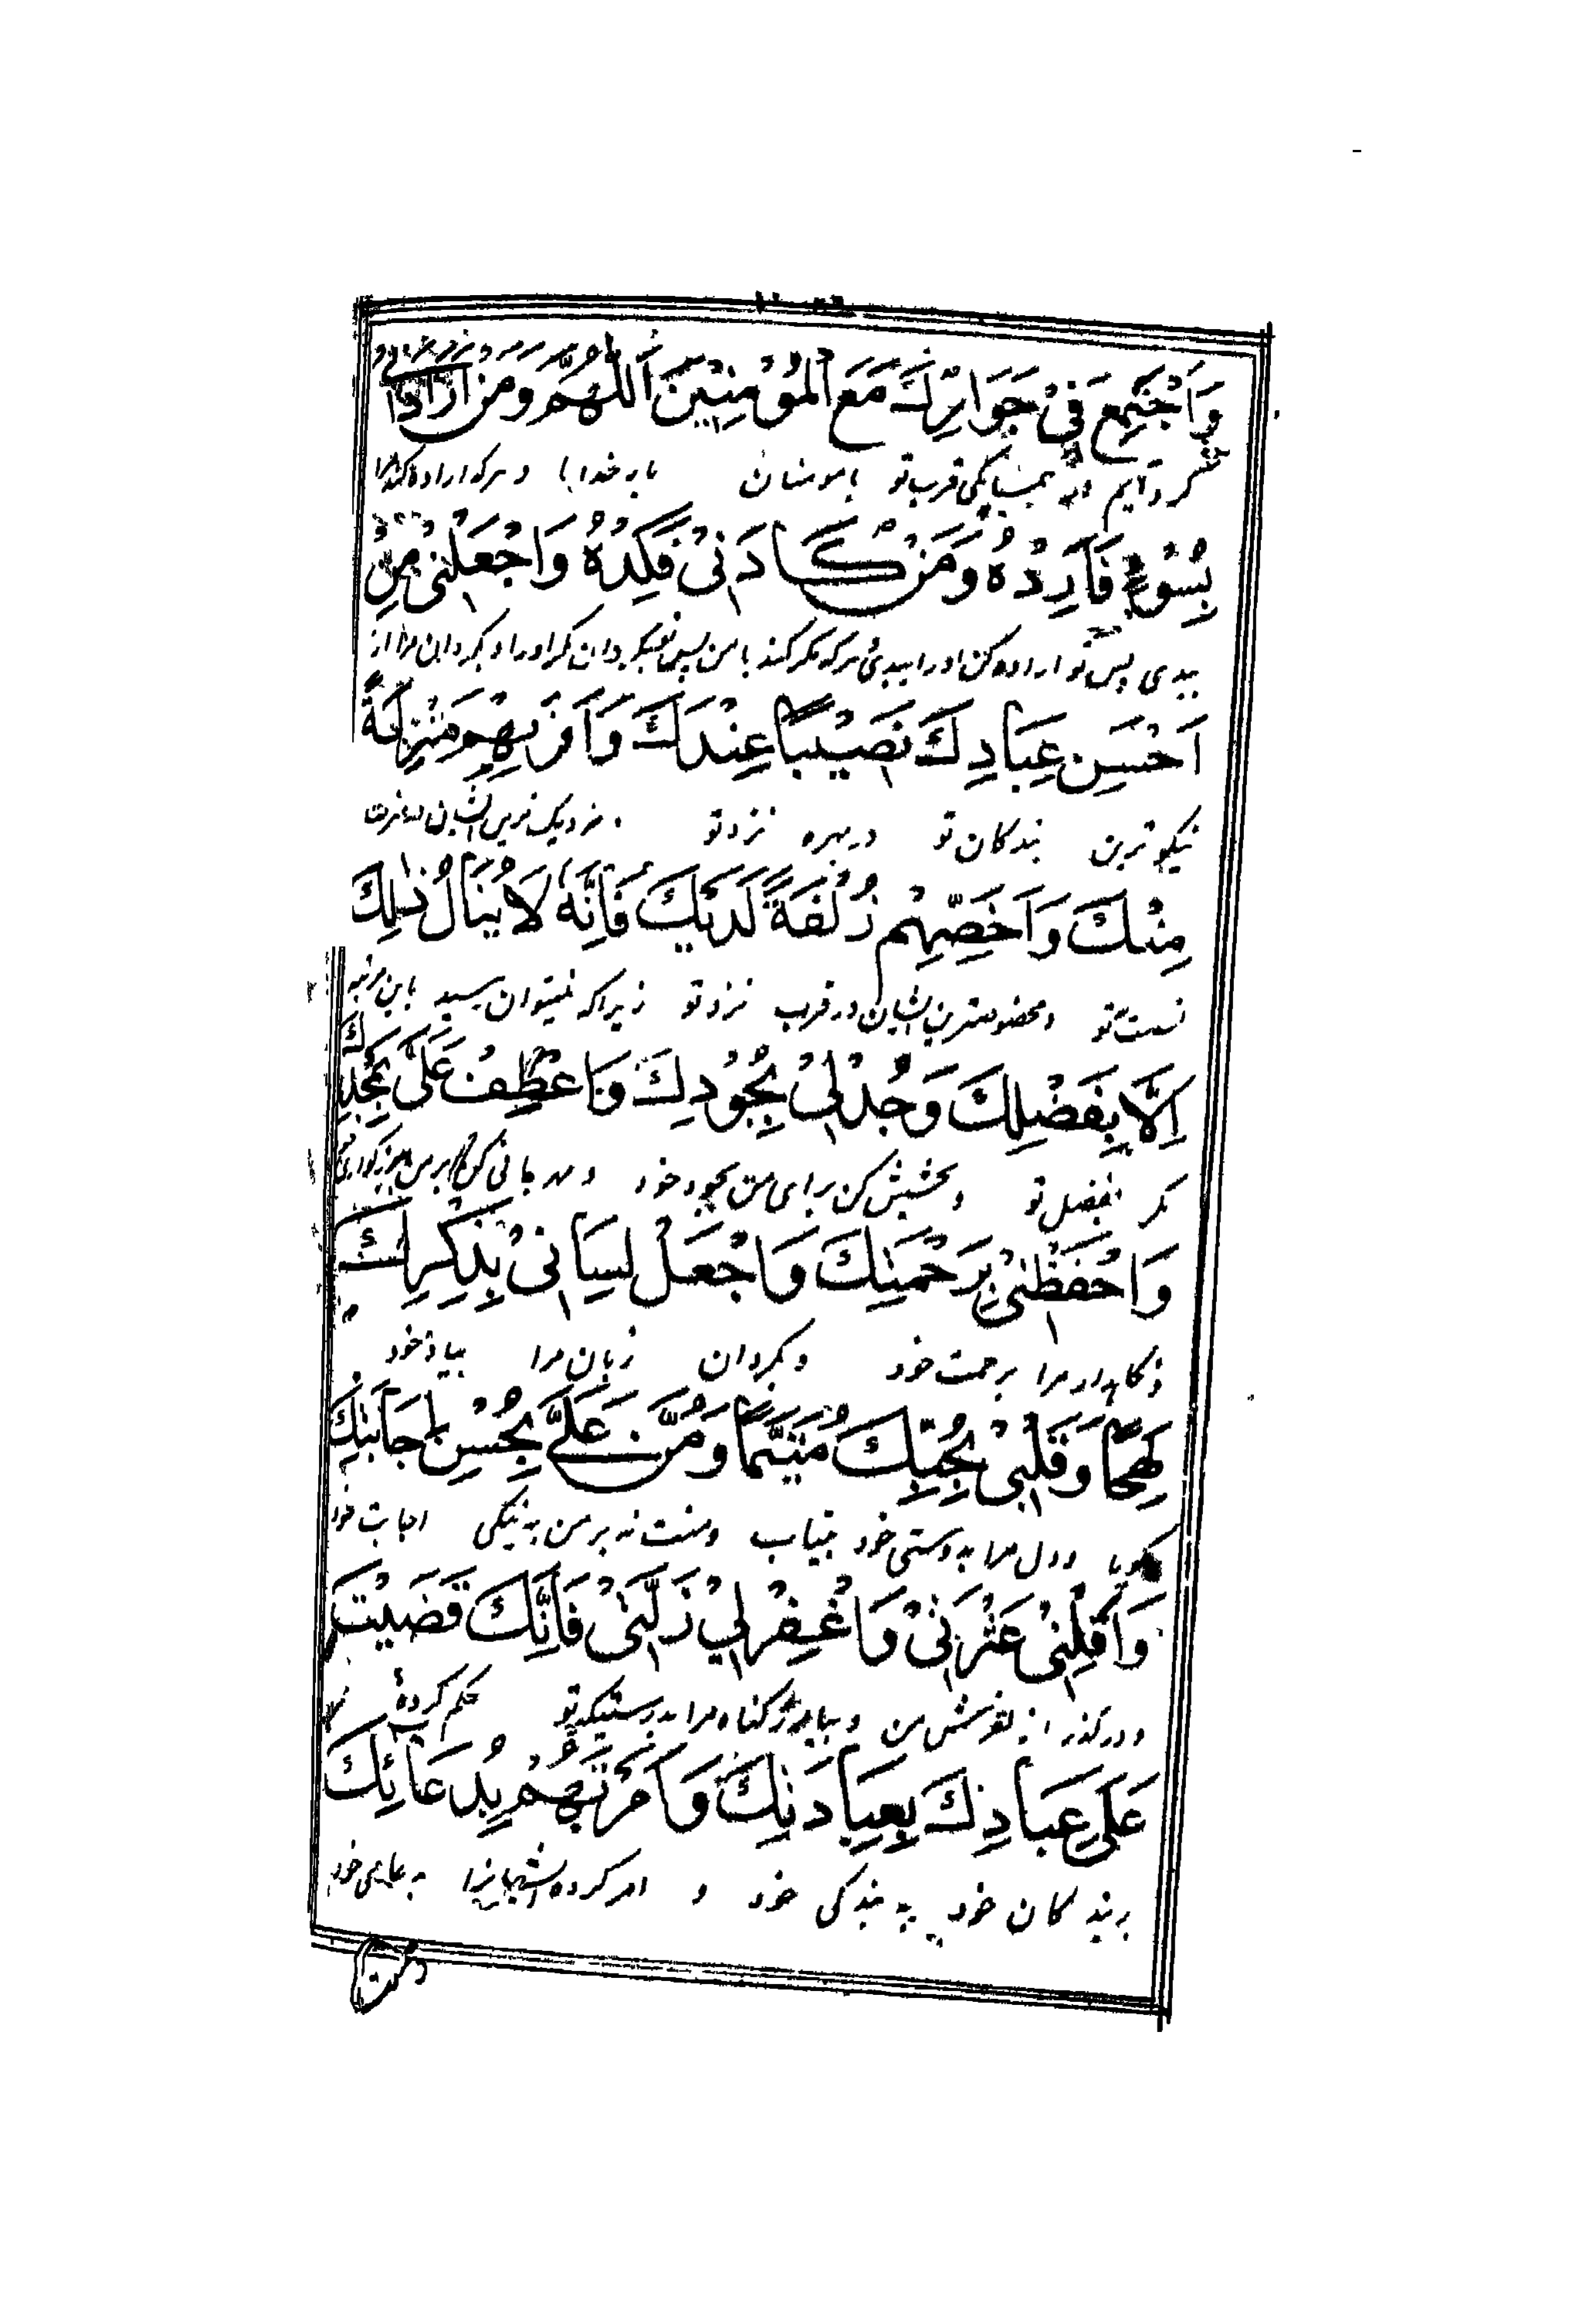 وَاَجْتَمِعَ فِیْ جَوَارِكَ مَعَ الْمُؤْمِنِیْنَ اَللّٰهُمَّ وَمَنْ اَرَادَنِیْ
كرد آیم همسایگی قرب تو با مومنان بار خدایا و هركه اراده كند مرا
بِسُوْءٍ فَاَرِدْهُ وَمَنْ كَادَنِیْ فَكِدْهُ وَاجْعَلْنِیْ مِنْ
ببدی پس تو اراده كن اورا ببدی هركه مكر كند با من پس تو بگردان مكر اورا و بگردان مرا از
اَحْسَنِ عِبَادِكَ نَصِیْبًا عِنْدَكَ وَاَقْرَبِهِمْ مَنْزِلَةً
نیكوترین بندكان تو در بهره نزد تو نزدیك ترین ایشان
مِنْكَ وَاَخَصِّهِمْ زُلْفَةً لَدَیْكَ فَاِنَّهُ لَا یُنَالُ ذٰلِكَ
نسبت بتو و مخصوصترین ایشان در قرب نزد تو زیرا كه نمیتوان رسید باین مرتبه
اِلَّا بِفَضْلِكَ وَجُدْ لِیْ بِجُوْدِكَ وَاعْطِفْ عَلَیَّ بِمَجْدِكَ
مكر بفضل تو و بخشش كن برای من بجود خود و مهربانی كن بر من ببزركواری خود
وَاحْفَظْنِیْ بِرَحْمَتِكَ وَاجْعَلْ لِسَانِیْ بِذِكْرِكَ
و نكاهدار مرا برحمت خود و بكردان زبان مرا بیاد خود
لَهِجًا وَقَلْبِیْ بِحُبِّكَ مُتَیَّمًا وَمُنَّ عَلَیَّ بِحُسْنِ اِجَابَتِكَ
كویا و دل مرا بدوستی خود بیتاب و منت نه بر من به نیكی اجابت خود
وَاَقِلْنِیْ عَثْرَتِیْ وَاغْفِرْ لِیْ زَلَّتِیْ فَاِنَّكَ قَضَیْتَ
و در كذر از لغزش من و بیامرز كناه مرا بدرستیكه تو حكم كردهٔ
عَلٰی عِبَادِكَ بِعِبَادَتِكَ وَاَمَرْتَهُمْ بِدُعَائِكَ
بر بندكان خود به بندكی خود و امر كرده ایشانرا به دعای خود